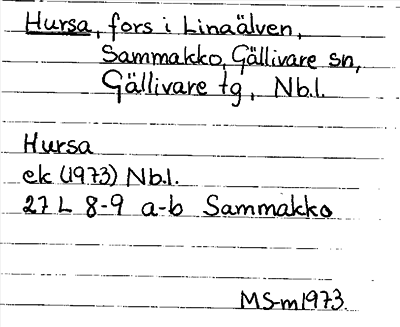 Hursa, fors i Linaälven,
Sammakko, Gällivare sn,
Gällivare tg, Nb.l.
Hursa
ek (1973) Nb.l.
27 L 8-9 a-b Sammakko
MS-m1973.